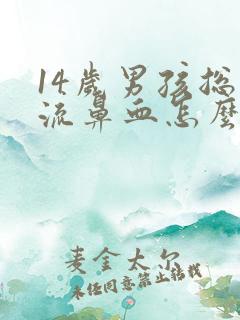 14歲男孩總
流鼻血怎麼
麦金太尔
未经同意禁止转载